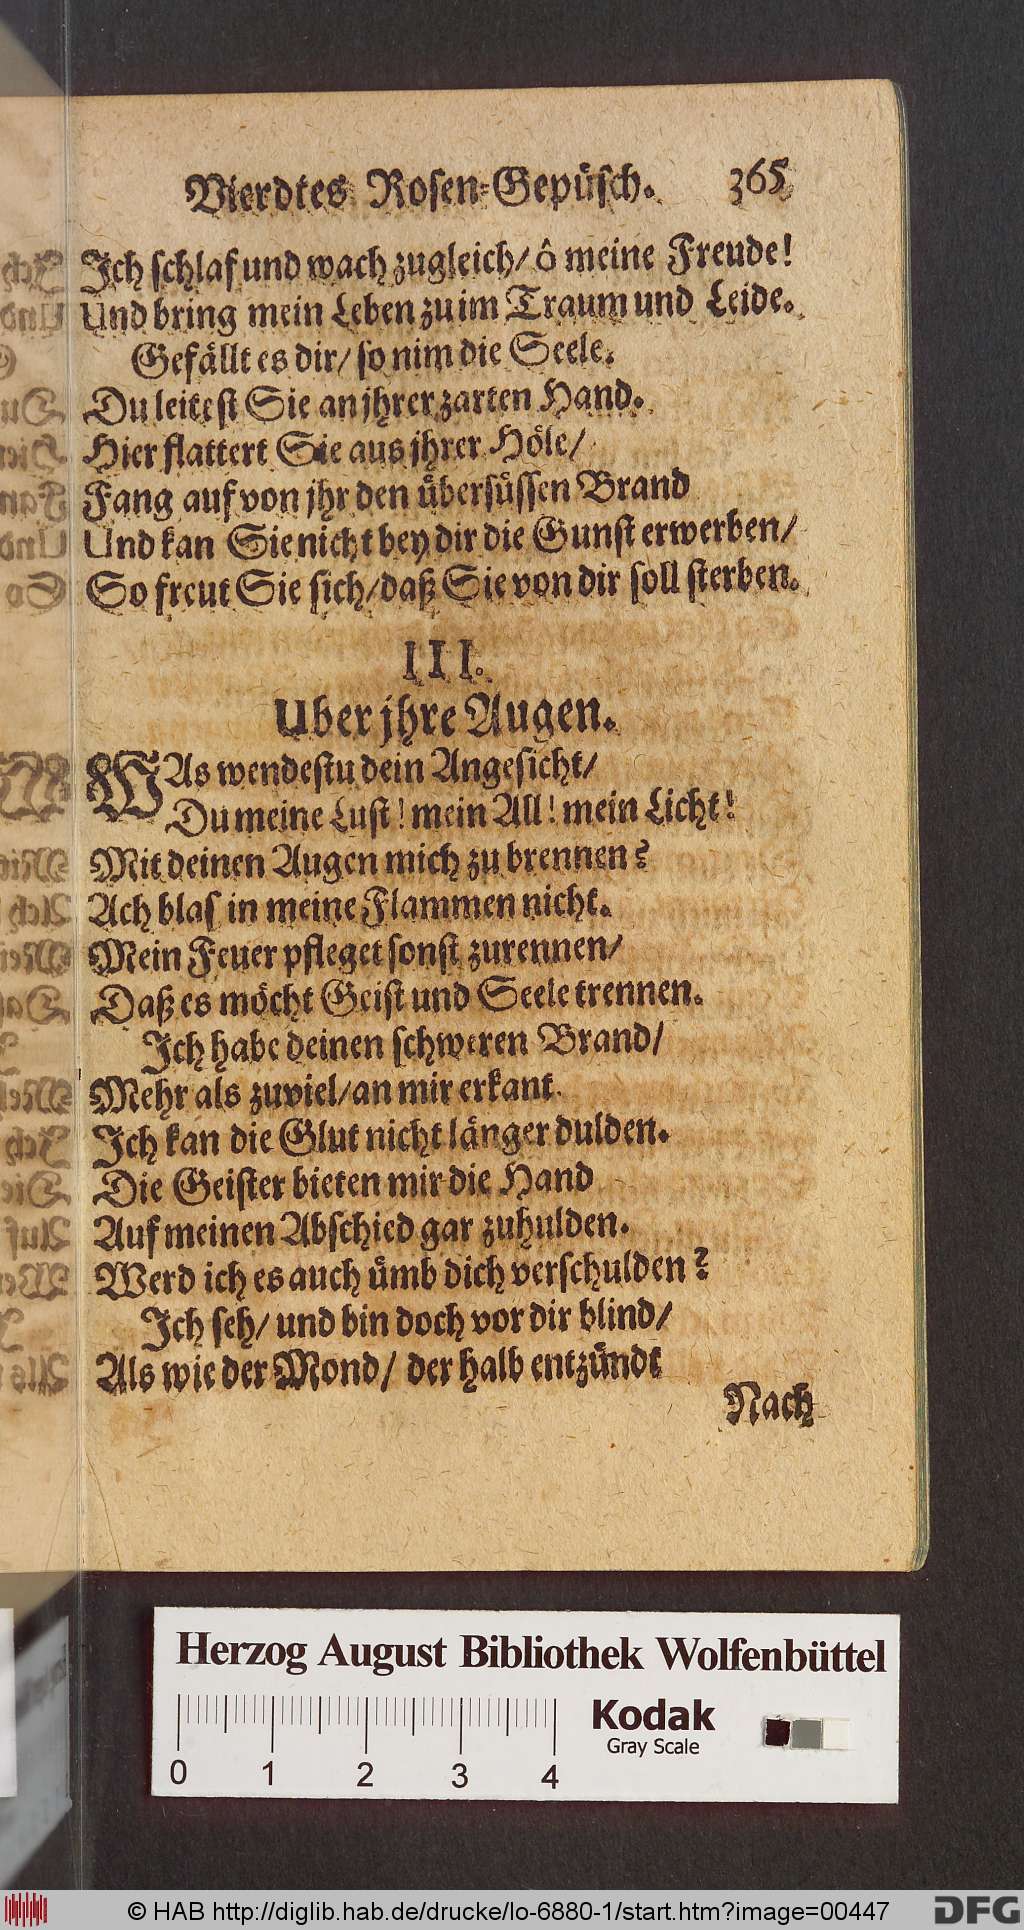 Vierdtes Rosen-Gepüsch. 365
Ich schlaf und wach zugleich/ ô meine Freude!
Und bring mein Leben zu im Traum und Leide.
Gefällt es dir/ so nim die Seele.
Du leitest Sie an jhrer zarten Hand.
Hier flattert Sie aus jhrer Höle/
Fang auf von jhr den übersüssen Brand
Und kan Sie nicht bey dir die Gunst erwerben/
So freut Sie sich/ daß Sie von dir soll sterben.
III.
Uber jhre Augen.
WAs wendestu dein Angesicht/
Du meine Lust! mein All! mein Licht!
Mit deinen Augen mich zu brennen?
Ach blas in meine Flammen nicht.
Mein Feuer pfleget sonst zurennen/
Daß es möcht Geist und Seele trennen.
Ich habe deinen schweren Brand/
Mehr als zuviel/ an mir erkant.
Ich kan die Glut nicht länger dulden.
Die Geister bieten mir die Hand
Auf meinen Abschied gar zuhulden.
Werd ich es auch ümb dich verschulden?
Ich seh/ und bin doch vor dir blind/
Als wie der Mond/ der halb entzündt
Nach
Herzog August Bibliothek Wolfenbüttel
Kodak
Gray Scale
0 1 2 3 4
© HAB http://diglib.hab.de/drucke/lo-6880-1/start.htm?image=00447
DFG